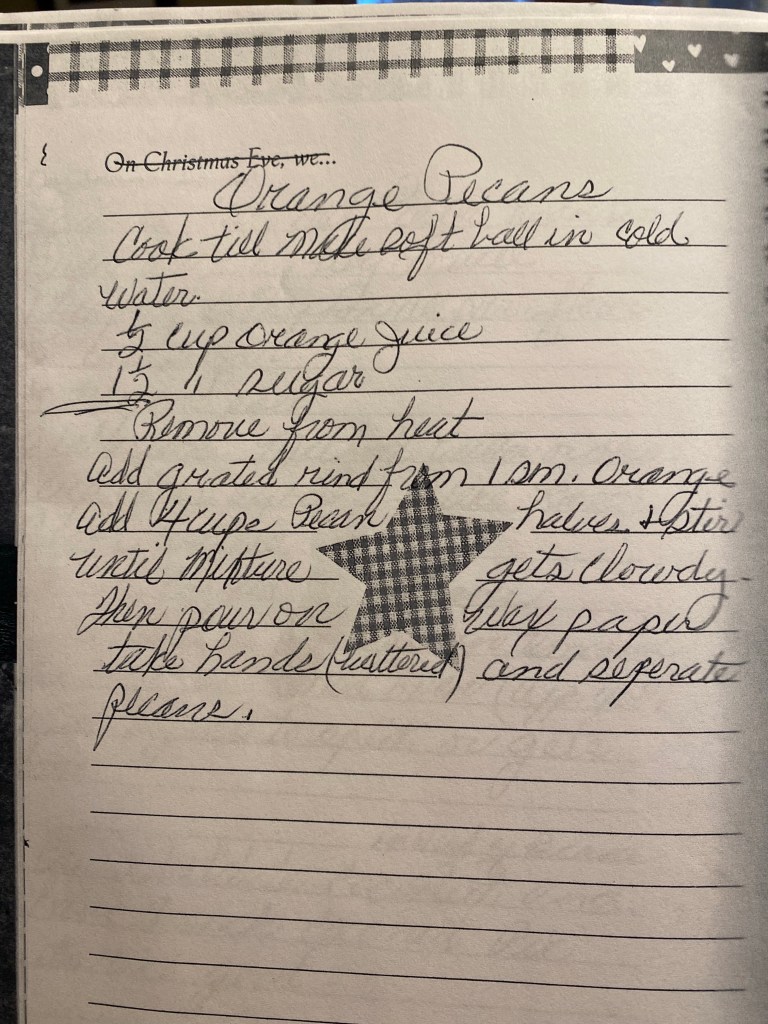 On Christmas Eve, we...
Orange Pecans
Cook till make soft ball in cold
water.
1/2 cup orange juice
1 1/2 " sugar
Remove from heat
add grated rind from 1 sm. Orange
add 4 cups Pecan halves & stir
until mixture gets clowdy.
Then pour on wax paper
take hands (buttered) and seperate
pecans.